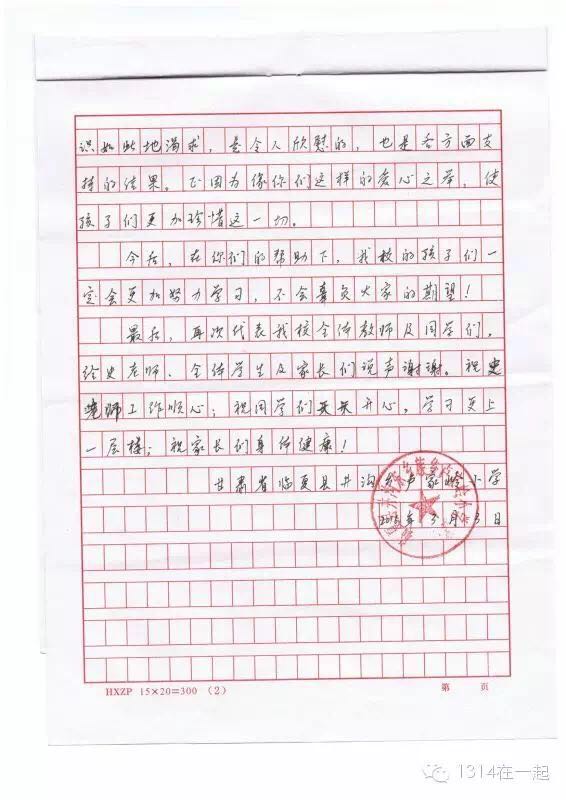 识如此地渴求，是令人欣慰的，也是各方面支
持的结果。正因为像你们这样的爱心之举，使
孩子们更加珍惜这一切。
今后，在你们的帮助下，我校的孩子们一
定会更加努力学习，不会辜负大家的期望！
最后，再次代表我校全体教师及同学们，
给史老师、全体学生及家长们说声谢谢。祝史
老师工作顺心；祝同学们天天开心，学习更上
一层楼；祝家长们身体健康！
甘肃省临夏县井沟乡卢家岭小学
年 月 日
HXZP 15×20=300 （2）
第 页
1314在一起